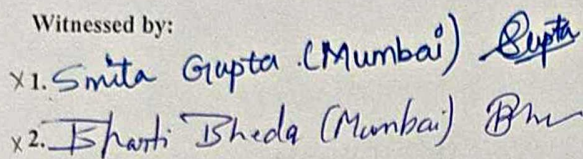 Witnessed by:
x 1. Smita Gupta (Mumbai) Gupta
x 2. Bharti Bheda (Mumbai)